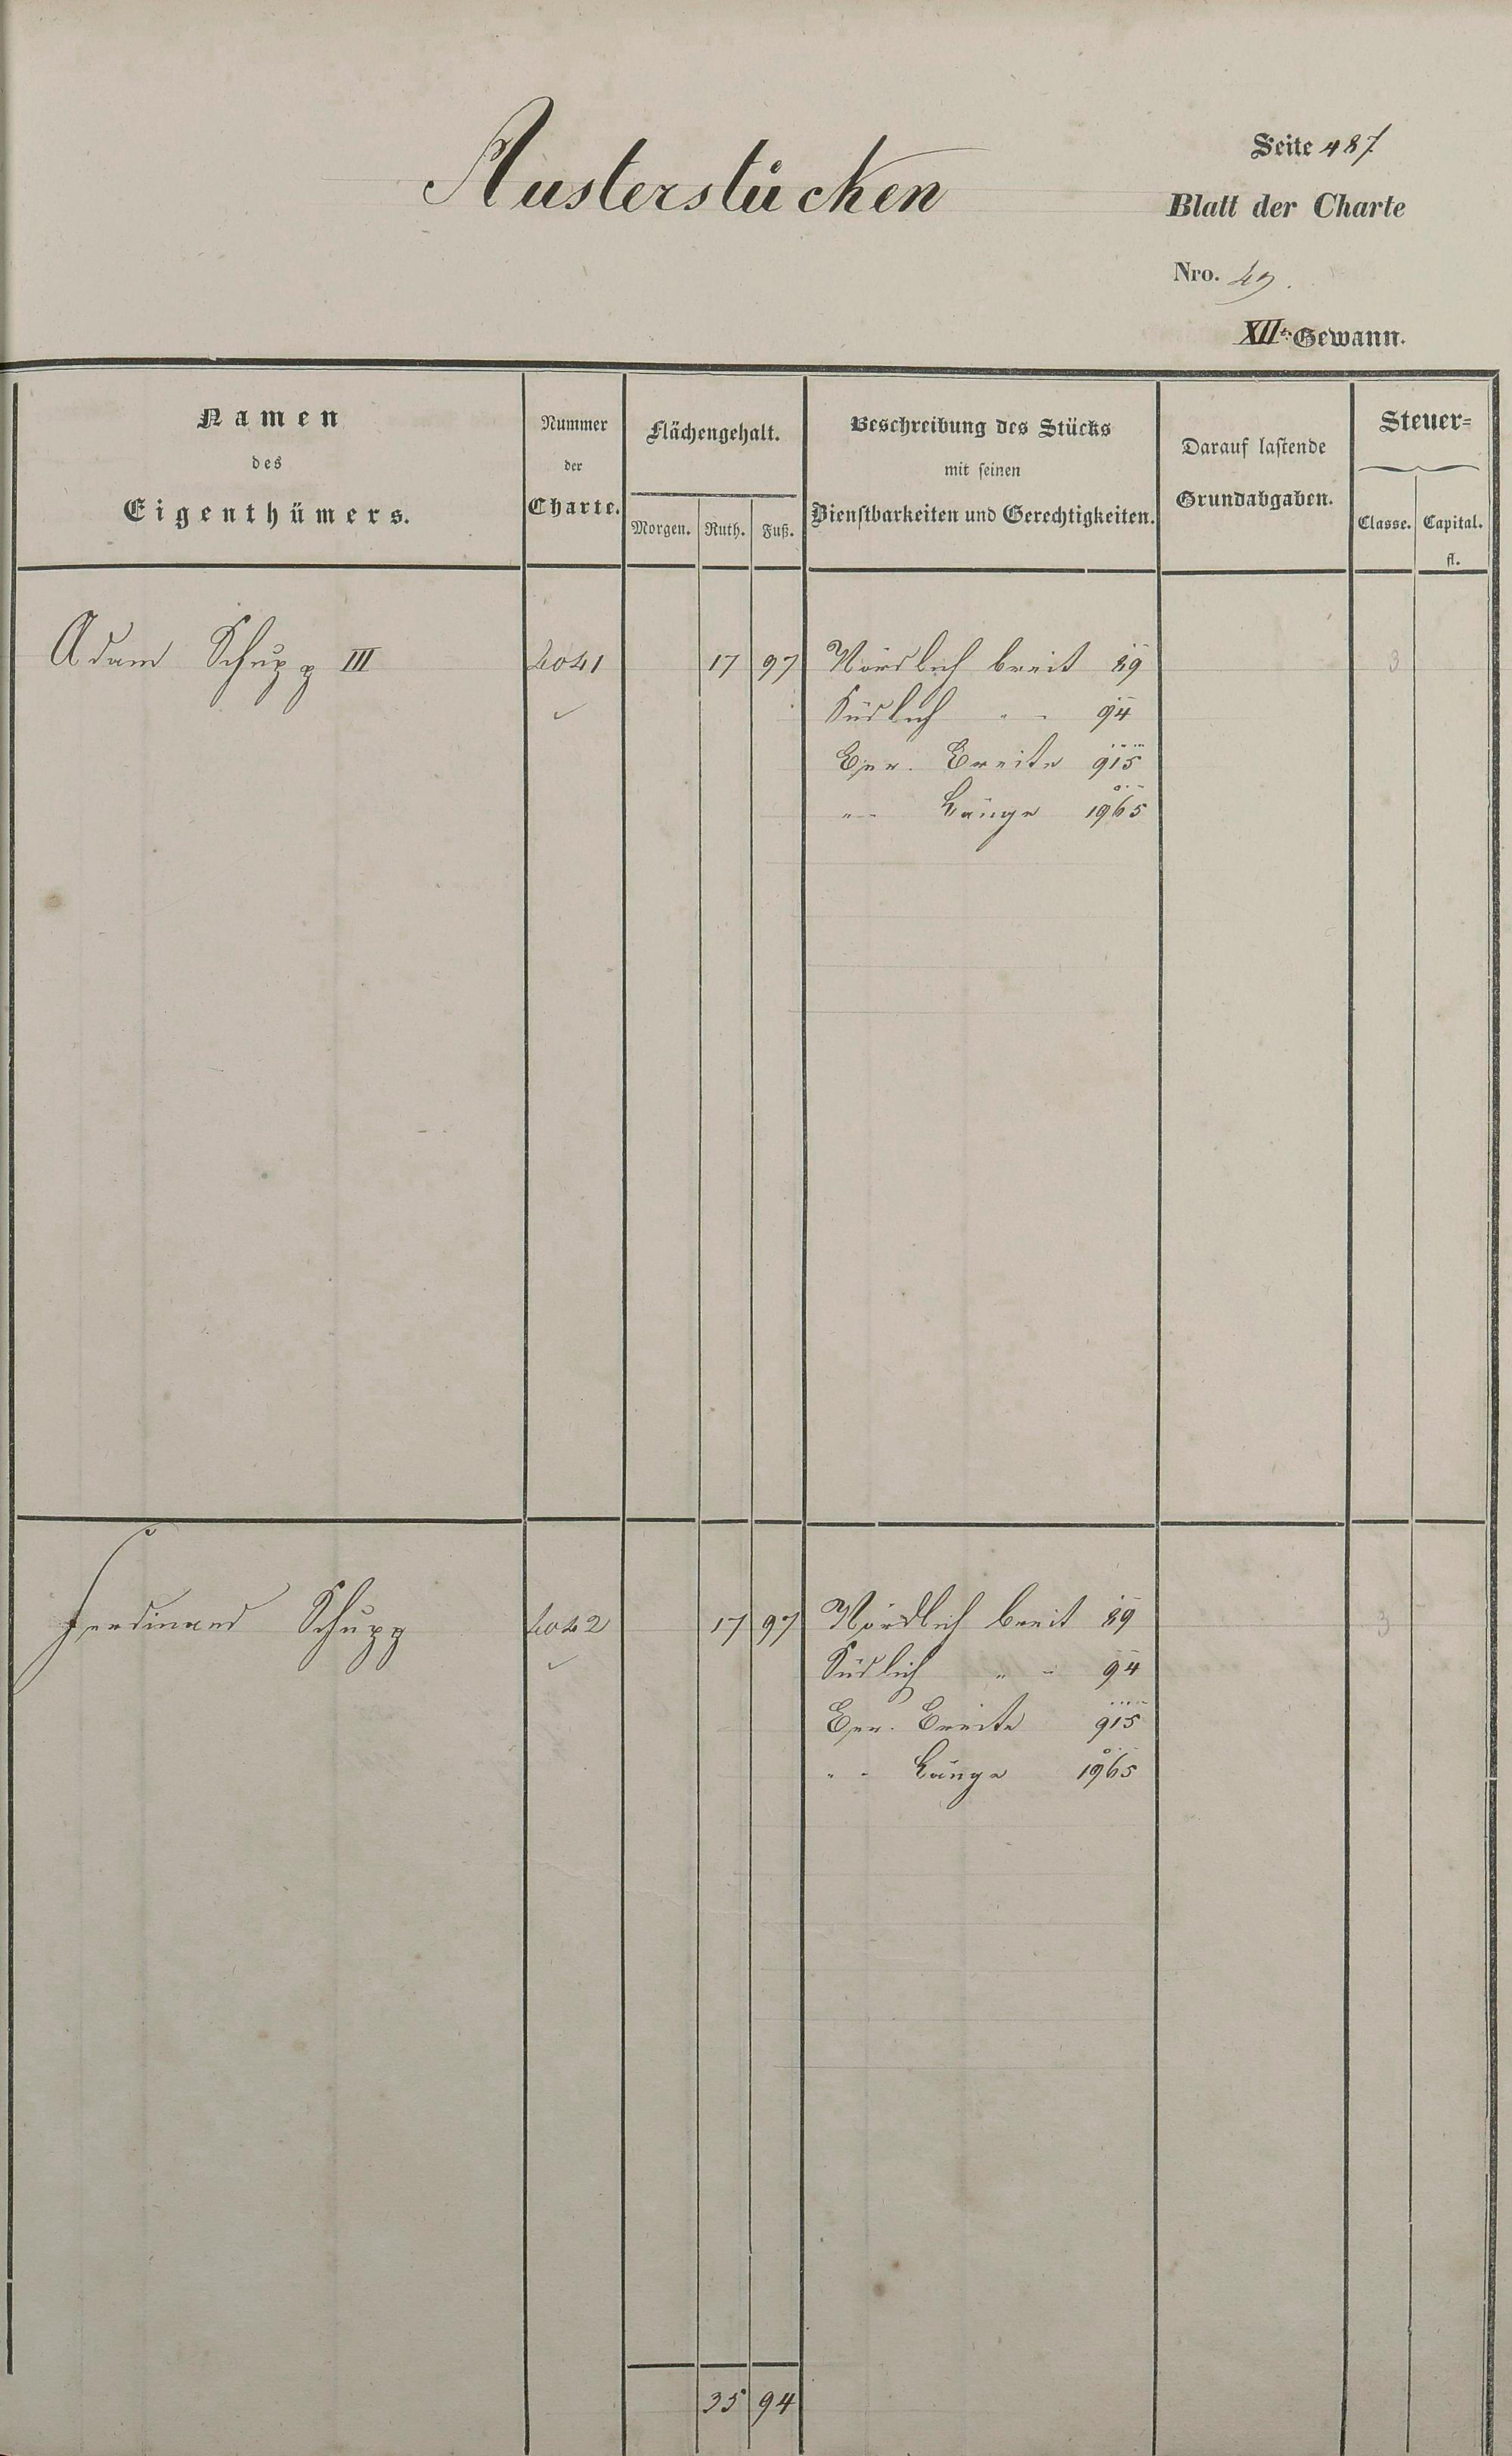 Austerstücken
Seite 487
Blatt der Charte
Nro. 49.
XIIte Gewann.
Namen
des
Eigenthümers.
Nummer
der
Charte.
Flächengehalt.
Morgen. Ruth. Fuß.
Beschreibung des Stücks
mit seinen
Dienstbarkeiten und Gerechtigkeiten.
Darauf lastende
Grundabgaben.
Steuer=
Classe. Capital.
fl.
Adam Schupp III 4041 17 97 Nördlich breit 89 3
Südlich " " 94
Ger. Breite 915
" " Länge 1965
Ferdinand Schupp 4042 17 97 Nördlich breit 89 3
Südlich " " 94
Ger. Breite 915
" " Länge 1965
35 94